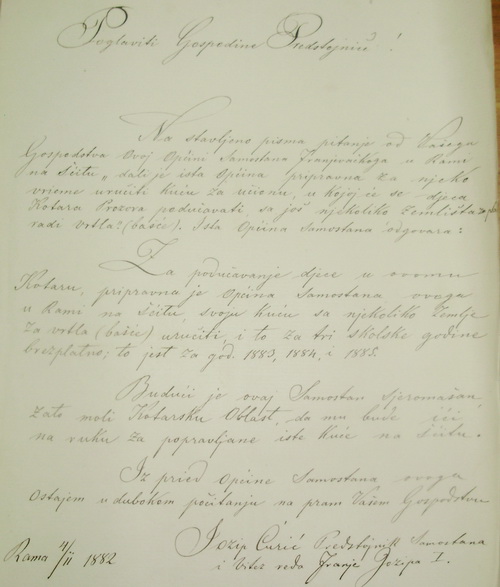 Poglaviti Gospodine Predstojniče!
Na stavljeno pisma pitanje od Vašega
Gospodstva Ovoj Općini Samostana Franjevačkoga u Rami
na Šćitu, dali je ista Općina pripravna za njeko
vrieme uručiti kuću za učionu, u kojoj će se djeca
Kotara Prozora podučavati, sa još njekoliko zemljišta
radi vrtla? (bašće). Ista Općina Samostana odgovara:
Za podučavanje djece u ovomu
Kotaru, pripravna je Općina Samostana ovoga
u Rami na Šćitu, svoju kuću sa njekoliko zemlje
za vrtla (bašće) uručiti, i to za tri školske godine
brezplatno; to jest za god. 1883, 1884, i 1885.
Budući je ovaj Samostan sjeromašan,
zato moli Kotarsku Oblast, da mu bude ići
na ruku za popravljane iste kuće na Šćitu.
Iz pried Općine Samostana ovoga
Ostajem u dubokom počitanju na pram Vašem Gospodstvu
Jozip Ćurić Predstojnik Samostana
i Vitez reda Franje Jozipa I.
Rama 4/II 1882